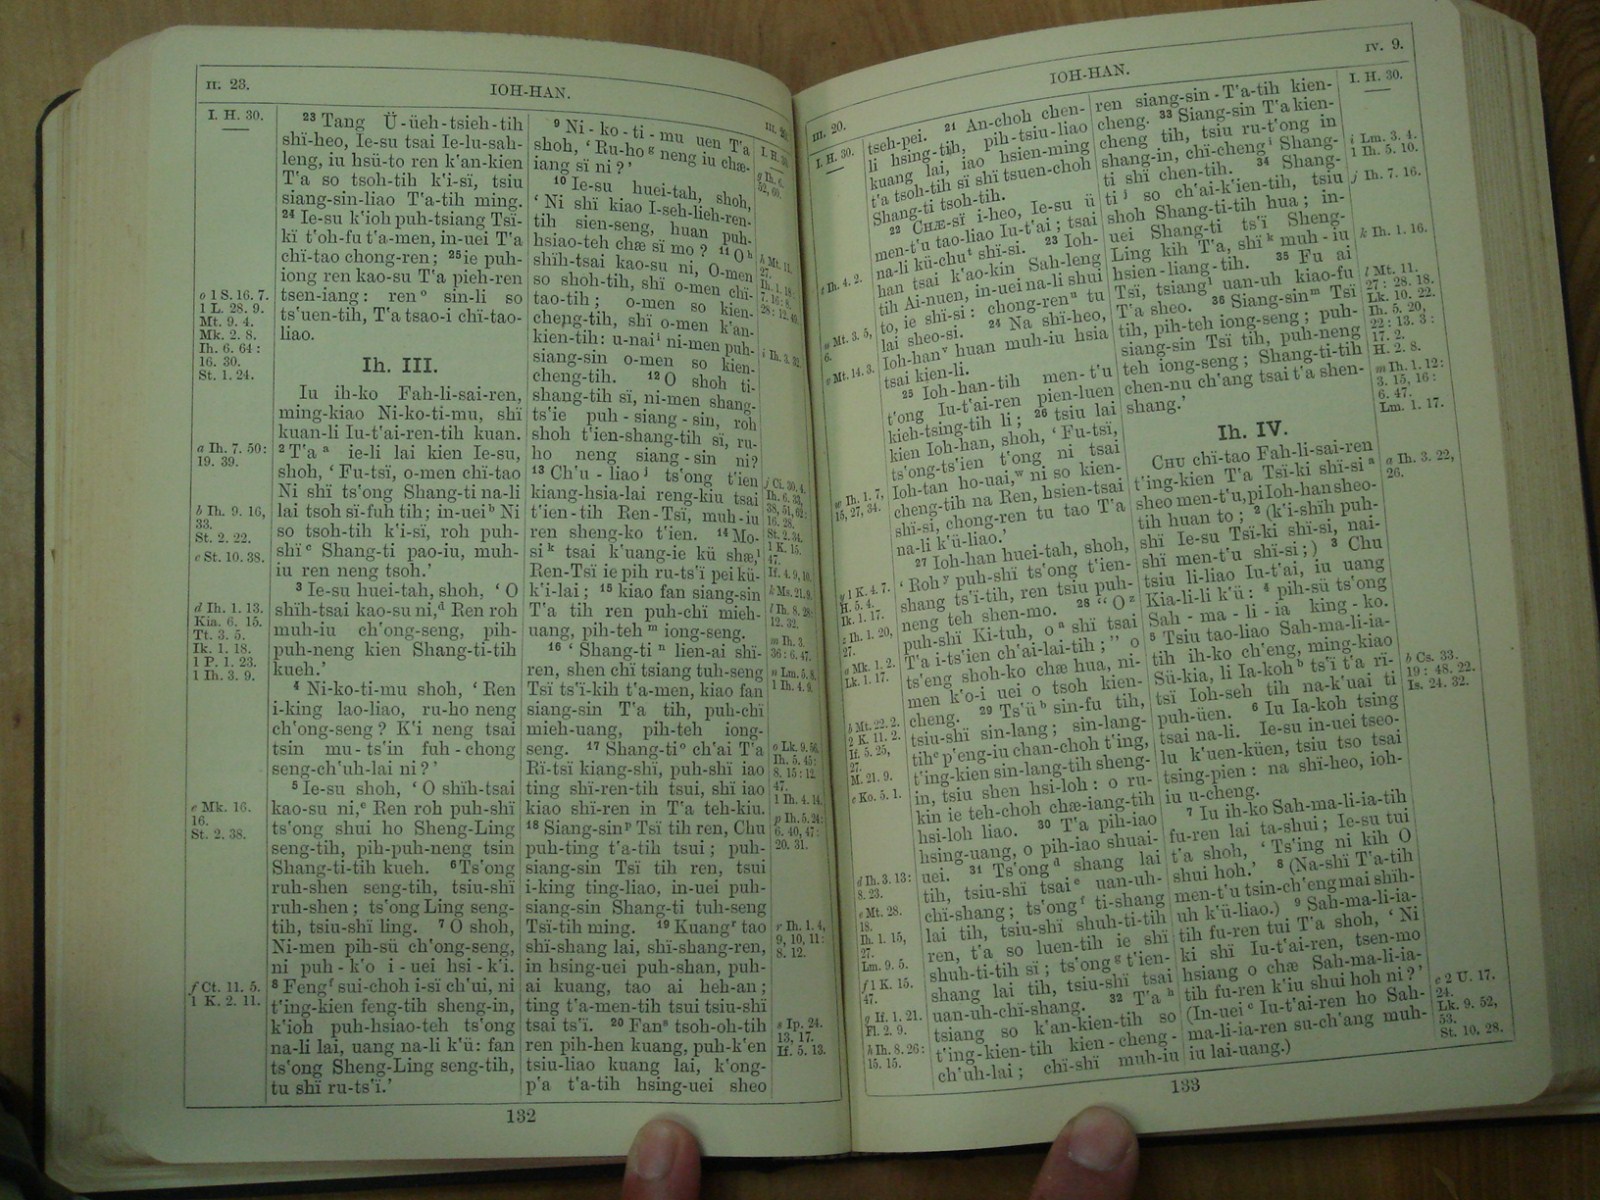 II. 23.
IOH-HAN.
III. 20.
I. H. 30.
23 Tang Ü-üeh-tsieh-tih
shï-heo, Ie-su tsai Ie-lu-sah-
leng, iu hsü-to ren k'an-kien
T'a so tsoh-tih k'i-sï, tsiu
siang-sin-liao T'a-tih ming.
24 Ie-su k'ioh puh-tsiang Tsï-
kï t'oh-fu t'a-men, in-uei T'a
chï-tao chong-ren; 25 ie puh-
iong ren kao-su T'a pieh-ren
tsen-iang: ren o sin-li so
ts'uen-tih, T'a tsao-i chï-tao-
liao.
o 1 S. 16. 7.
1 L. 28. 9.
Mt. 9. 4.
Mk. 2. 8.
Ih. 6. 64:
16. 30.
St. 1. 24.
Ih. III.
Iu ih-ko Fah-li-sai-ren,
ming-kiao Ni-ko-ti-mu, shï
kuan-li Iu-t'ai-ren-tih kuan.
2 T'a a ie-li lai kien Ie-su,
shoh, ‘ Fu-tsï, o-men chï-tao
Ni shï ts'ong Shang-ti na-li
lai tsoh sï-fuh tih; in-uei b Ni
so tsoh-tih k'i-sï, roh puh-
shï c Shang-ti pao-iu, muh-
iu ren neng tsoh.’
3 Ie-su huei-tah, shoh, ‘ O
shïh-tsai kao-su ni, d Ren roh
muh-iu ch'ong-seng, pih-
puh-neng kien Shang-ti-tih
kueh.’
4 Ni-ko-ti-mu shoh, ‘ Ren
i-king lao-liao, ru-ho neng
ch'ong-seng? K'i neng tsai
tsin mu-ts'in fuh-chong
seng-ch'uh-lai ni?’
5 Ie-su shoh, ‘ O shïh-tsai
kao-su ni, e Ren roh puh-shï
ts'ong shui ho Sheng-Ling
seng-tih, pih-puh-neng tsin
Shang-ti-tih kueh. 6 Ts'ong
ruh-shen seng-tih, tsiu-shï
ruh-shen; ts'ong Ling seng-
tih, tsiu-shï ling. 7 O shoh,
Ni-men pih-sü ch'ong-seng,
ni puh-k'o i-uei hsi-k'i.
8 Feng f sui-choh i-sï ch'ui, ni
t'ing-kien feng-tih sheng-in,
k'ioh puh-hsiao-teh ts'ong
na-li lai, uang na-li k'ü: fan
ts'ong Sheng-Ling seng-tih,
tu shï ru-ts'ï.’
a Ih. 7. 50:
19. 39.
b Ih. 9. 16,
33.
St. 2. 22.
c St. 10. 38.
d Ih. 1. 13.
Kia. 6. 15.
Tt. 3. 5.
Ik. 1. 18.
1 P. 1. 23.
1 Ih. 3. 9.
e Mk. 16.
16.
St. 2. 38.
f Ct. 11. 5.
1 K. 2. 11.
9 Ni-ko-ti-mu uen T'a
shoh, ‘ Ru-ho g neng iu chæ-
iang sï ni?’
10 Ie-su huei-tah, shoh,
‘ Ni shï kiao I-seh-lieh-ren-
tih sien-seng, huan puh-
hsiao-teh chæ sï mo? 11 O h
shïh-tsai kao-su ni, O-men
so shoh-tih, shï o-men chï-
tao-tih; o-men so kien-
cheng-tih, shï o-men k'an-
kien-tih: u-nai i ni-men puh-
siang-sin o-men so kien-
cheng-tih. 12 O shoh ti-
shang-tih sï, ni-men shang-
ts'ie puh-siang-sin, roh
shoh t'ien-shang-tih sï, ru-
ho neng siang-sin ni?
13 Ch'u-liao j ts'ong t'ien
kiang-hsia-lai reng-kiu tsai
t'ien-tih Ren-Tsï, muh-iu
ren sheng-ko t'ien. 14 Mo-
si k tsai k'uang-ie kü shæ, l
Ren-Tsï ie pih ru-ts'ï pei kü-
k'i-lai; 15 kiao fan siang-sin
T'a tih ren puh-chï mieh-
uang, pih-teh m iong-seng.
16 ‘ Shang-ti n lien-ai shï-
ren, shen chï tsiang tuh-seng
Tsï ts'ï-kih t'a-men, kiao fan
siang-sin T'a tih, puh-chï
mieh-uang, pih-teh iong-
seng. 17 Shang-ti o ch'ai T'a
Rï-tsï kiang-shï, puh-shï iao
ting shï-ren-tih tsui, shï iao
kiao shï-ren in T'a teh-kiu.
18 Siang-sin p Tsï tih ren, Chu
puh-ting t'a-tih tsui; puh-
siang-sin Tsï tih ren, tsui
i-king ting-liao, in-uei puh-
siang-sin Shang-ti tuh-seng
Tsï-tih ming. 19 Kuang r tao
shï-shang lai, shï-shang-ren,
in hsing-uei puh-shan, puh-
ai kuang, tao ai heh-an;
ting t'a-men-tih tsui tsiu-shï
tsai ts'ï. 20 Fan s tsoh-oh-tih
ren pih-hen kuang, puh-k'en
tsiu-liao kuang lai, k'ong-
p'a t'a-tih hsing-uei sheo
h Mt. 11.
27.
i Ih. 3. 32.
j Ct. 30. 4.
Ih. 6. 33,
38, 51, 62:
16. 28.
St. 2. 34.
1 K. 15.
47.
If. 4. 9, 10.
k Ms. 21. 9.
l Ih. 8. 28:
12. 32.
m Ih. 3.
36: 6. 47.
n Lm. 5. 8.
1 Ih. 4. 9.
o Lk. 9. 56.
Ih. 5. 45:
8. 15: 12.
47.
1 Ih. 4. 14.
p Ih. 5. 24:
6. 40, 47:
20. 31.
r Ih. 1. 4,
9, 10, 11:
8. 12.
s Ip. 24.
13, 17.
If. 5. 13.
132
III. 20.
IOH-HAN.
IV. 9.
I. H. 30.
tseh-pei. 21 An-choh chen-
li hsing-tih, pih-tsiu-liao
kuang lai, iao hsien-ming
t'a tsoh-tih sï shï tsuen-choh
Shang-ti tsoh-tih.
22 CHÆ-sï i-heo, Ie-su ü
men-t'u tao-liao Iu-t'ai; tsai
na-li kü-chu t shï-si. 23 Ioh-
han tsai k'ao-kin Sah-leng
tih Ai-nuen, in-uei na-li shui
to, ie shï-si: chong-ren u tu
lai sheo-si. 24 Na shï-heo,
Ioh-han v huan muh-iu hsia
tsai kien-li.
25 Ioh-han-tih men-t'u
t'ong Iu-t'ai-ren pien-luen
kieh-tsing-tih li; 26 tsiu lai
kien Ioh-han, shoh, ‘ Fu-tsï,
ts'ong-ts'ien t'ong ni tsai
Ioh-tan ho-uai, w ni so kien-
cheng-tih na Ren, hsien-tsai
shï-si, chong-ren tu tao T'a
na-li k'ü-liao.’
27 Ioh-han huei-tah, shoh,
‘ Roh y puh-shï ts'ong t'ien-
shang ts'ï-tih, ren tsiu puh-
neng teh shen-mo. 28 “ O z
puh-shï Ki-tuh, o a shï tsai
T'a i-ts'ien ch'ai-lai-tih;” o
ts'eng shoh-ko chæ hua, ni-
men k'o-i uei o tsoh kien-
cheng. 29 Ts'ü b sin-fu tih,
tsiu-shï sin-lang; sin-lang-
tih c p'eng-iu chan-choh t'ing,
t'ing-kien sin-lang-tih sheng-
in, tsiu shen hsi-loh: o ru-
kin ie teh-choh chæ-iang-tih
hsi-loh liao. 30 T'a pih-iao
hsing-uang, o pih-iao shuai-
uei. 31 Ts'ong d shang lai
tih, tsiu-shï tsai e uan-uh-
chï-shang; ts'ong f ti-shang
lai tih, tsiu-shï shuh-ti-tih
ren, t'a so luen-tih ie shï
shuh-ti-tih sï; ts'ong g t'ien-
shang lai tih, tsiu-shï tsai
uan-uh-chï-shang. 32 T'a h
tsiang so k'an-kien-tih so
t'ing-kien-tih kien-cheng-
ch'uh-lai; chï-shï muh-iu
I. H. 30.
t Ih. 4. 2.
u Mt. 3. 5,
6.
v Mt. 14. 3.
w Ih. 1. 7,
15, 27, 34.
y 1 K. 4. 7.
H. 5. 4.
Ik. 1. 17.
z Ih. 1. 20,
27.
a Mk. 1. 2.
Lk. 1. 17.
b Mt. 22. 2.
2 K. 11. 2.
If. 5. 25,
27.
M. 21. 9.
c Ko. 5. 1.
d Ih. 3. 13:
8. 23.
e Mt. 28.
18.
Ih. 1. 15,
27.
Lm. 9. 5.
f 1 K. 15.
47.
g If. 1. 21.
Fl. 2. 9.
h Ih. 8. 26:
15. 15.
ren siang-sin T'a-tih kien-
cheng. 33 Siang-sin T'a kien-
cheng tih, tsiu ru-t'ong in
shang-in, chï-cheng i Shang-
ti shï chen-tih. 34 Shang-
ti j so ch'ai-k'ien-tih, tsiu
shoh Shang-ti-tih hua; in-
uei Shang-ti ts'ï Sheng-
Ling kih T'a, shï k muh-iu
hsien-liang-tih. 35 Fu ai
Tsï, tsiang l uan-uh kiao-fu
T'a sheo. 36 Siang-sin m Tsï
tih, pih-teh iong-seng; puh-
siang-sin Tsï tih, puh-neng
teh iong-seng; Shang-ti-tih
chen-nu ch'ang tsai t'a shen-
shang.’
i Lm. 3. 4.
1 Ih. 5. 10.
j Ih. 7. 16.
k Ih. 1. 16.
l Mt. 11.
27: 28. 18.
Lk. 10. 22.
Ih. 5. 20,
22: 13. 3:
17. 2.
H. 2. 8.
m Ih. 1. 12:
3. 15, 16:
6. 47.
Lm. 1. 17.
Ih. IV.
CHU chï-tao Fah-li-sai-ren
t'ing-kien T'a Tsï-ki shï-si a
sheo men-t'u, pi Ioh-han sheo-
tih huan to; 2 (k'i-shïh puh-
shï Ie-su Tsï-ki shï-si, nai-
shï men-t'u shï-si;) 3 Chu
tsiu li-liao Iu-t'ai, iu uang
Kia-li-li k'ü: 4 pih-sü ts'ong
Sah-ma-li-ia king-ko.
5 Tsiu tao-liao Sah-ma-li-ia-
tih ih-ko ch'eng, ming-kiao
Sü-kia, li Ia-koh b ts'ï t'a ri-
tsï Ioh-seh tih na-k'uai ti
puh-üen. 6 Iu Ia-koh tsing
tsai na-li. Ie-su in-uei tseo-
lu k'uen-küen, tsiu tso tsai
tsing-pien: na shï-heo, ioh-
iu u-cheng.
7 Iu ih-ko Sah-ma-li-ia-tih
fu-ren lai ta-shui; Ie-su tui
t'a shoh, ‘ Ts'ing ni kih O
shui hoh.’ 8 (Na-shï T'a-tih
men-t'u tsin-ch'eng mai shïh-
uh k'ü-liao.) 9 Sah-ma-li-ia-
tih fu-ren tui T'a shoh, ‘ Ni
ki shï Iu-t'ai-ren, tsen-mo
hsiang o chæ Sah-ma-li-ia-
tih fu-ren k'iu shui hoh ni?’
(In-uei c Iu-t'ai-ren ho Sah-
ma-li-ia-ren su-ch'ang muh-
iu lai-uang.)
a Ih. 3. 22,
26.
b Cs. 33.
19: 48. 22.
Is. 24. 32.
c 2 U. 17.
24.
Lk. 9. 52,
53.
St. 10. 28.
133